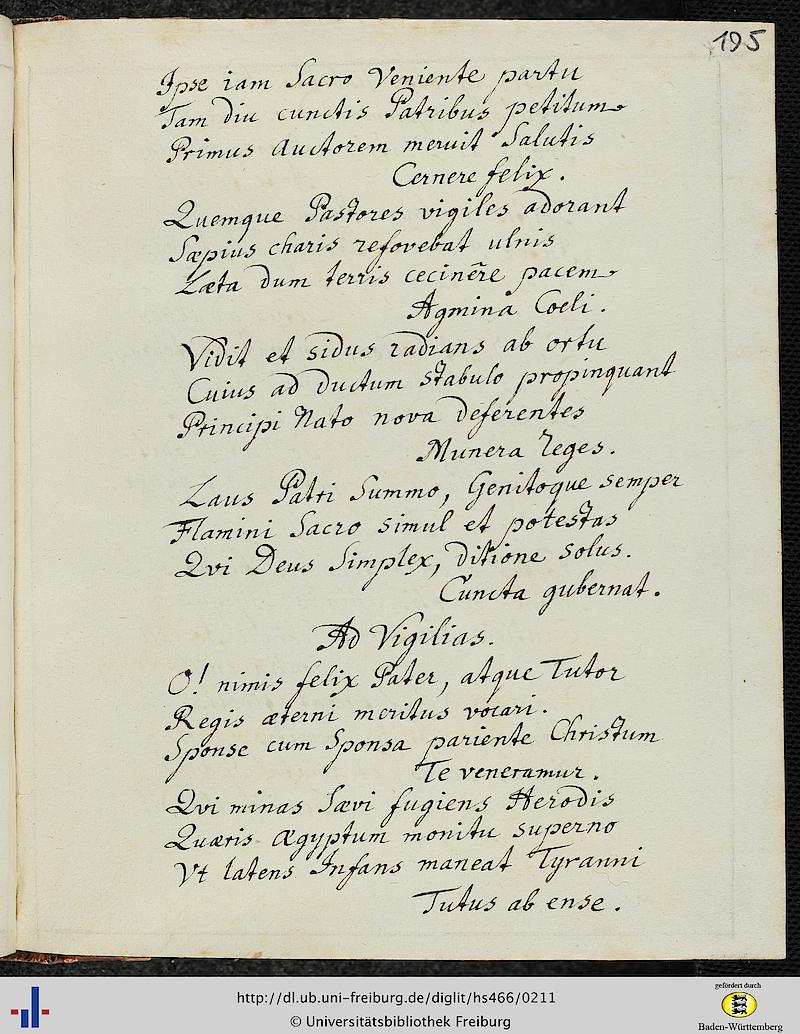 195
Ipse iam Sacro Veniente partu
Tam diu cunctis Patribus petitum
Primus Auctorem meruit Salutis
Cernere felix.
Quemque Pastores vigiles adorant
Sæpius charis refovebat ulnis
Læta dum terris cecinẽre pacem
Agmina Coeli.
Vidit et sidus radians ab ortu
Cuius ad ductum stabulo propinquant
Principi Nato nova deferentes
Munera reges.
Laus Patri Summo, Genitoque semper
Flamini Sacro simul et potestas
Qvi Deus Simplex, ditione solus.
Cuncta gubernat.
Ad Vigilias.
O! nimis felix Pater, atque Tutor
Regis æterni meritus vocari.
Sponse cum Sponsa pariente Christum
Te veneramur.
Qvi minas Sævi fugiens Herodis
Quæris Ægyptum monitu superno
Vt latens Infans maneat Tyranni
Tutus ab ense.
http://dl.ub.uni-freiburg.de/diglit/hs466/0211
© Universitätsbibliothek Freiburg
gefördert durch
Baden-Württemberg